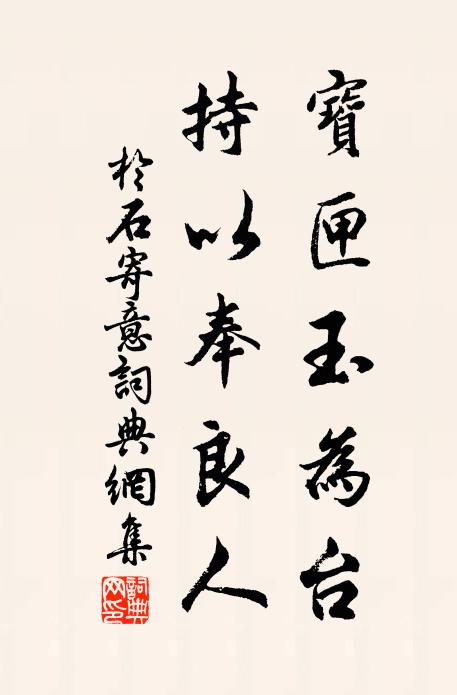 寶匣玉為台
持以奉良人
於石寄意詞典網集
詞典網印